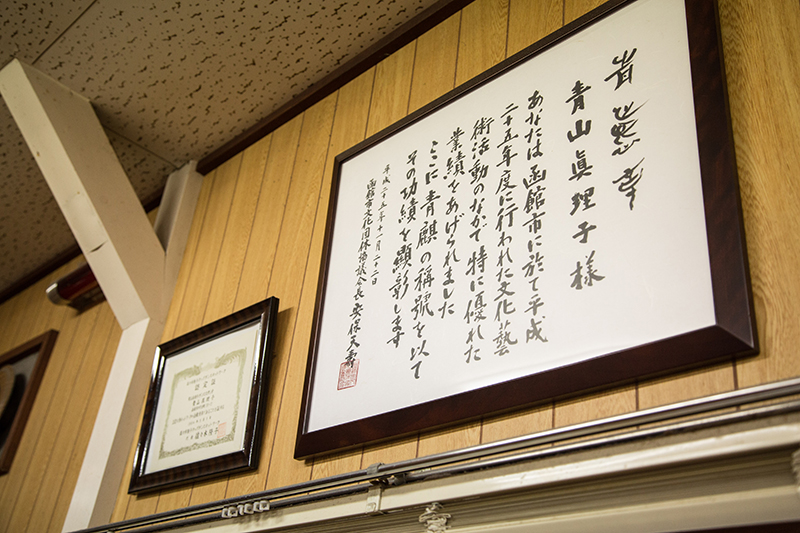 青麒章
青山眞理子様
あなたは函館市に於て平成
二十五年度に行われた文化藝
術活動のなかで特に優れた
業績をあげられました
ここに青麒の稱號を以て
その功績を顯彰します
平成二十五年十一月二十二日
函館市文化団体協議会長 安保天壽
認定証